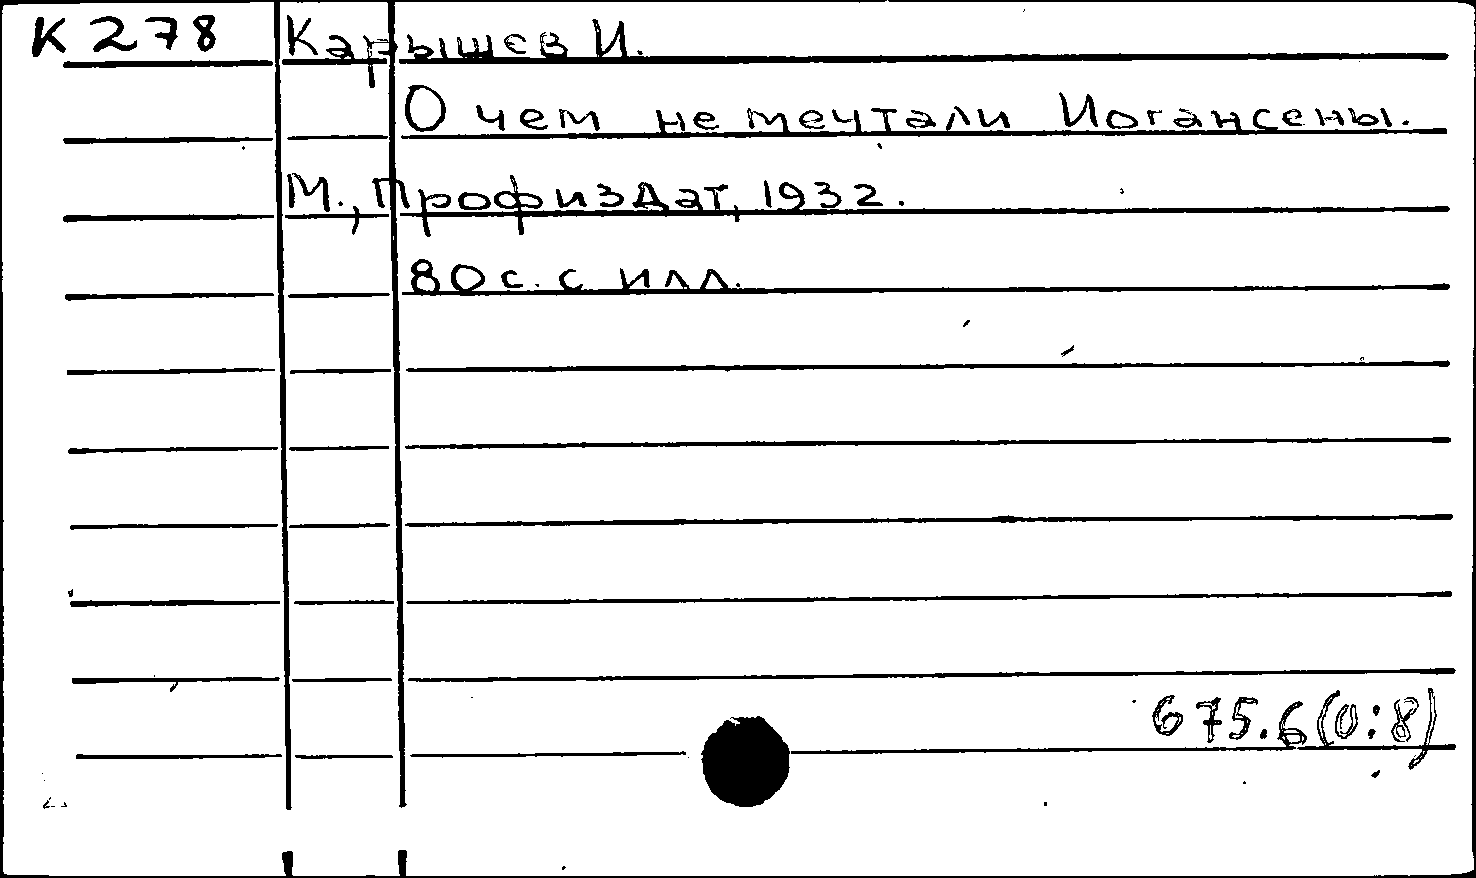 К 278 Карышев И.
О чем не мечтали Иогансены.
М., Профиздат, 1932.
80 с. с илл.
675.6(0:8)